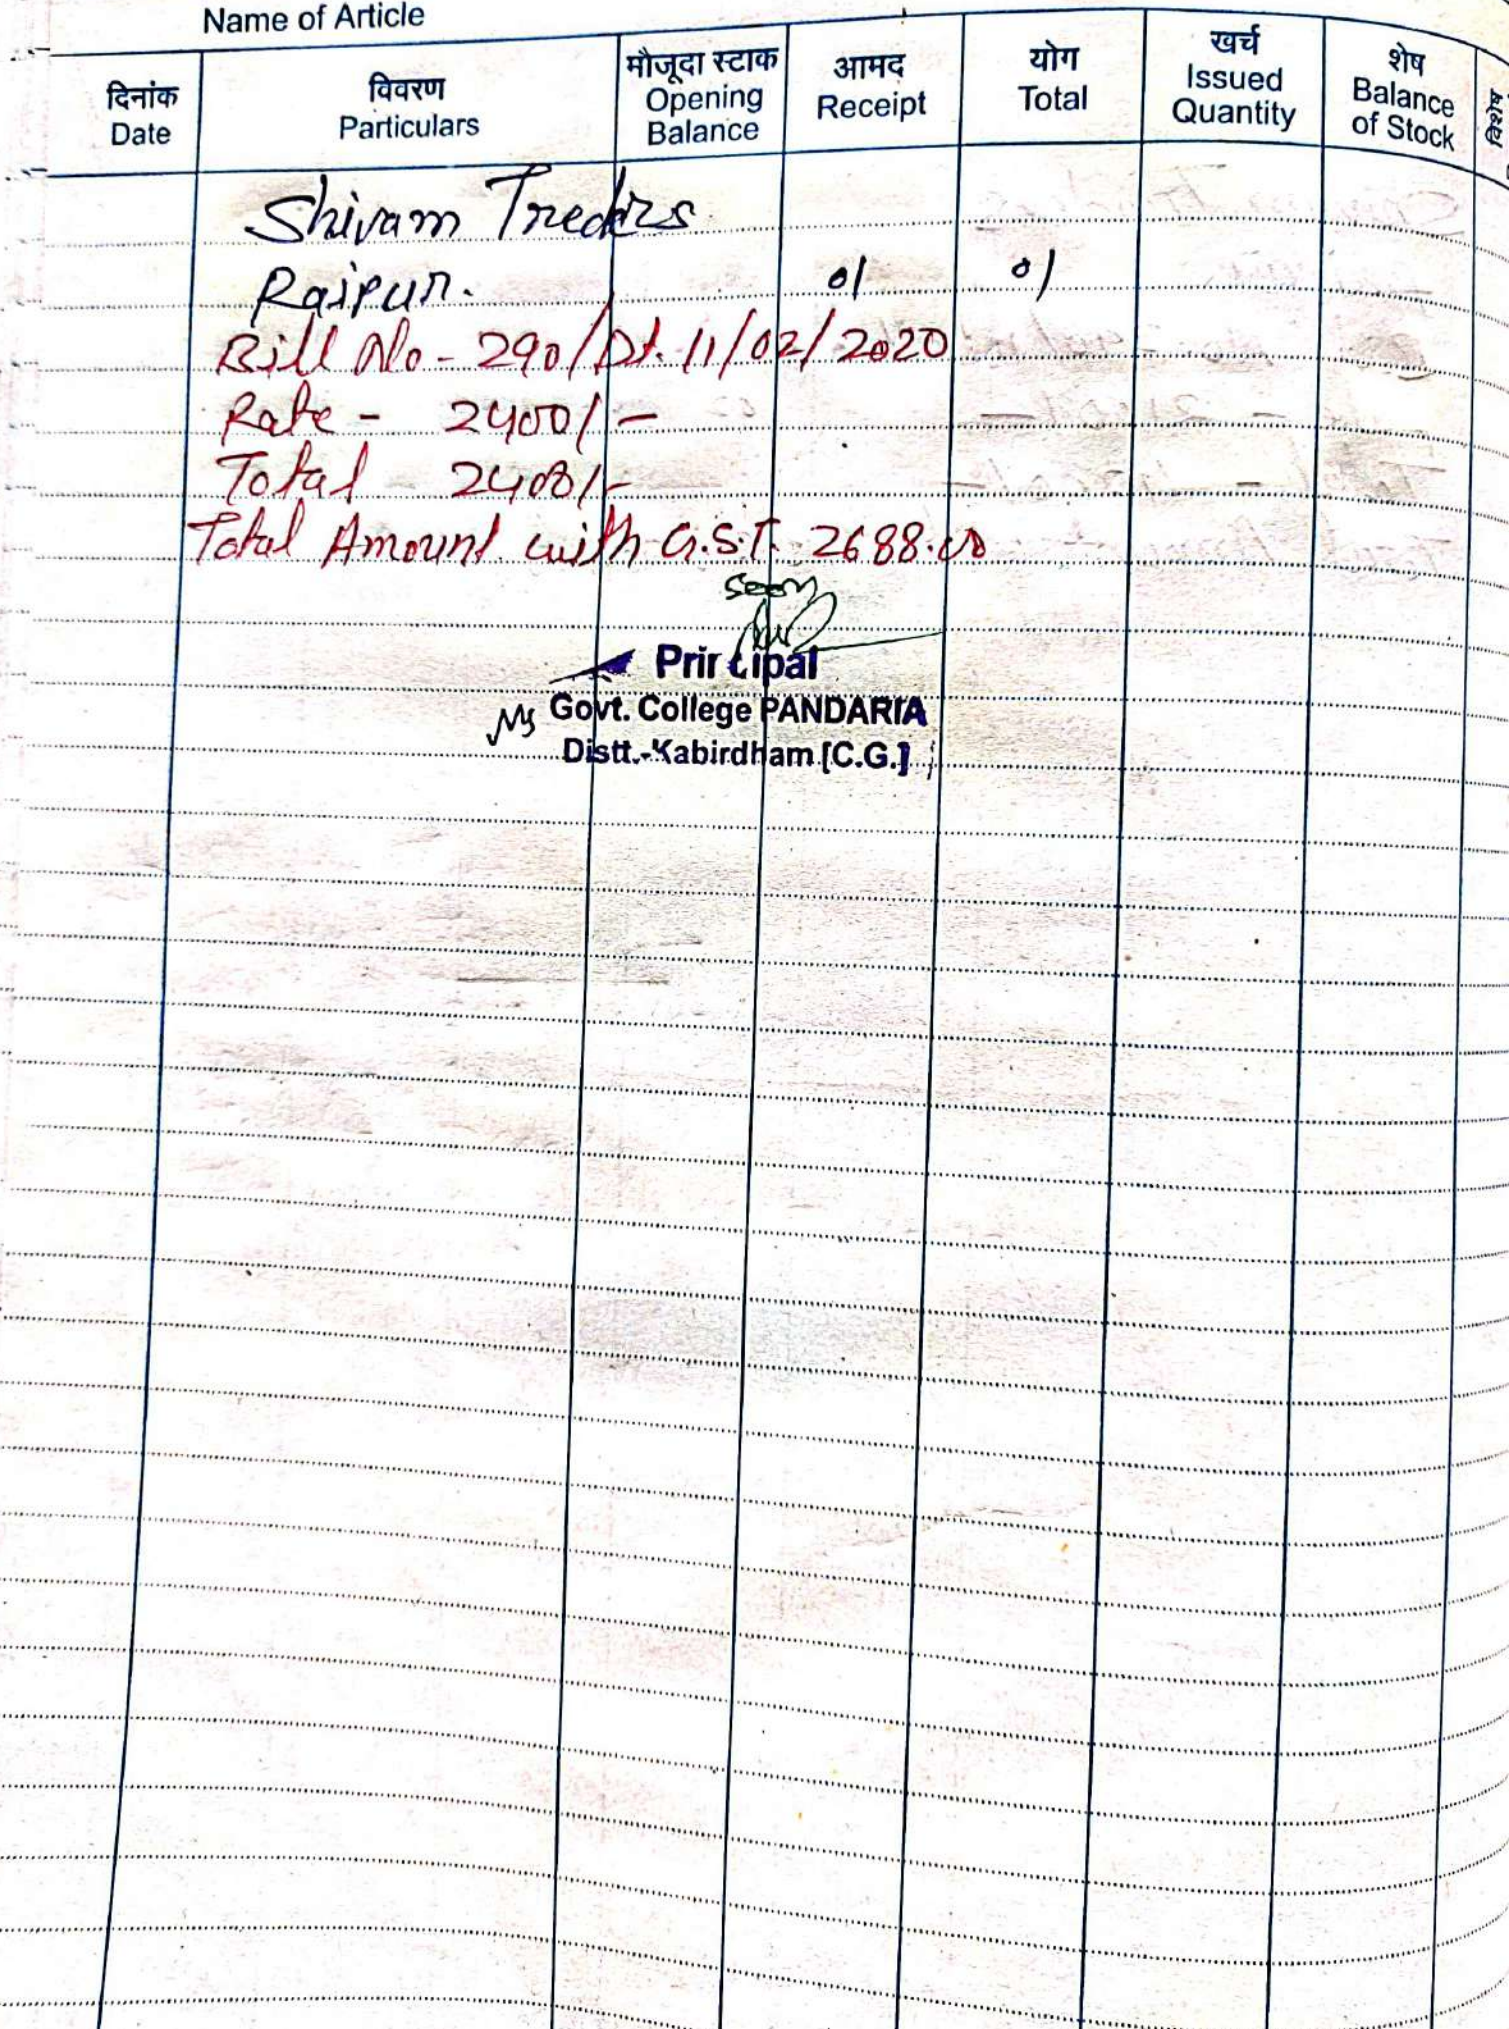 Name of Article
दिनांक Date
विवरण Particulars
मौजूदा स्टाक Opening Balance
आमद Receipt
योग Total
खर्च Issued Quantity
शेष Balance of Stock
Shivam Treders
Raipur. 01 01
Bill No - 290/Dt. 11/02/2020
Rate - 2400/-
Total 2400/-
Total Amount with G.S.T. 2688.00
seen
Principal
Govt. College PANDARIA
Distt.-Kabirdham [C.G.]